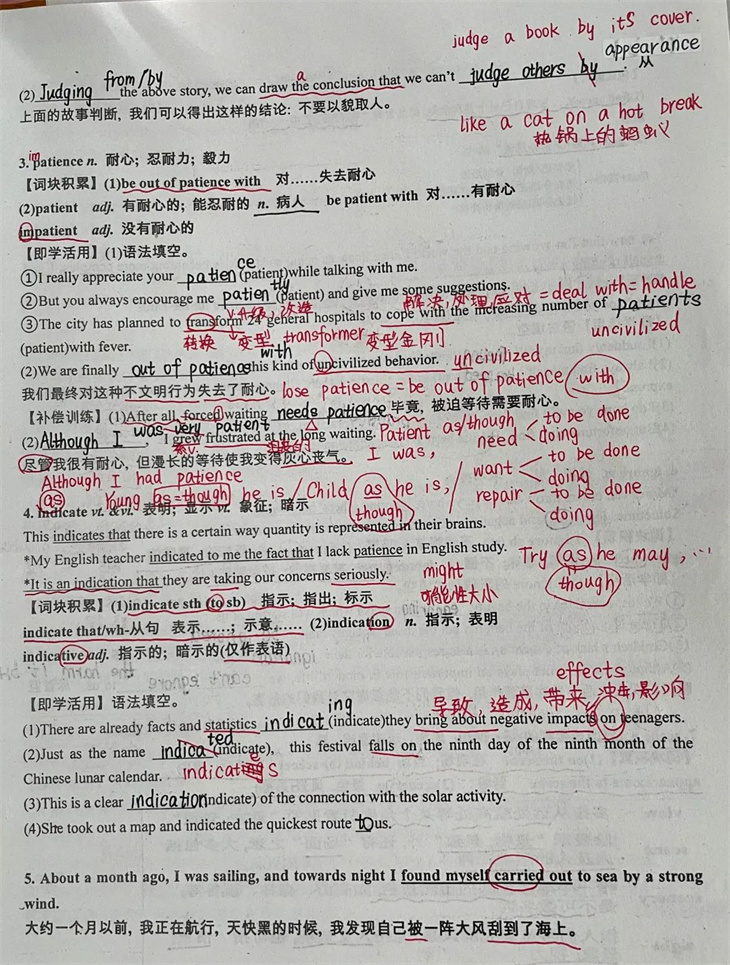 judge a book by its cover.
from/by appearance
(2) Judging the above story, we can draw the conclusion that we can't judge others by . 从
a
上面的故事判断, 我们可以得出这样的结论: 不要以貌取人。
like a cat on a hot break
热锅上的蚂蚁
im
3. patience n. 耐心；忍耐力；毅力
【词块积累】(1)be out of patience with 对……失去耐心
(2)patient adj. 有耐心的；能忍耐的 n. 病人 be patient with 对……有耐心
impatient adj. 没有耐心的
【即学活用】(1)语法填空。
①I really appreciate your patience (patient)while talking with me.
②But you always encourage me patiently (patient) and give me some suggestions.
升级, 改造 解决, 处理, 应对 = deal with = handle
③The city has planned to transform 24 general hospitals to cope with the increasing number of patients
转换 变型 transformer 变型金刚 uncivilized
(patient)with fever.
with
(2)We are finally out of patience this kind of uncivilized behavior. uncivilized
我们最终对这种不文明行为失去了耐心。 lose patience = be out of patience with
【补偿训练】(1)After all, forced waiting needs patience 毕竟, 被迫等待需要耐心。
was very patient
(2) Although I , I grew frustrated at the long waiting. Patient as/though
need to be done
doing
尽管我很有耐心, 但漫长的等待使我变得灰心丧气。 I was,
Although I had patience
want to be done
doing
as Young as = though he is / Child as he is, /
though
repair to be done
doing
4. indicate vt. &vi. 表明；显示 vt. 象征；暗示
This indicates that there is a certain way quantity is represented in their brains.
*My English teacher indicated to me the fact that I lack patience in English study.
Try as he may, …
though
*It is an indication that they are taking our concerns seriously.
might
可能性大小
【词块积累】(1)indicate sth (to sb) 指示；指出；标示
indicate that/wh-从句 表示……；示意…… (2)indication n. 指示；表明
indicative adj. 指示的；暗示的(仅作表语)
effects
【即学活用】语法填空。
导致, 造成, 带来, 冲击, 影响
(1)There are already facts and statistics indicating (indicate)they bring about negative impacts on teenagers.
(2)Just as the name indicated (indicate), this festival falls on the ninth day of the ninth month of the
Chinese lunar calendar. indicates
(3)This is a clear indication indicate) of the connection with the solar activity.
(4)She took out a map and indicated the quickest route to us.
5. About a month ago, I was sailing, and towards night I found myself carried out to sea by a strong
wind.
大约一个月以前, 我正在航行, 天快黑的时候, 我发现自己被一阵大风刮到了海上。